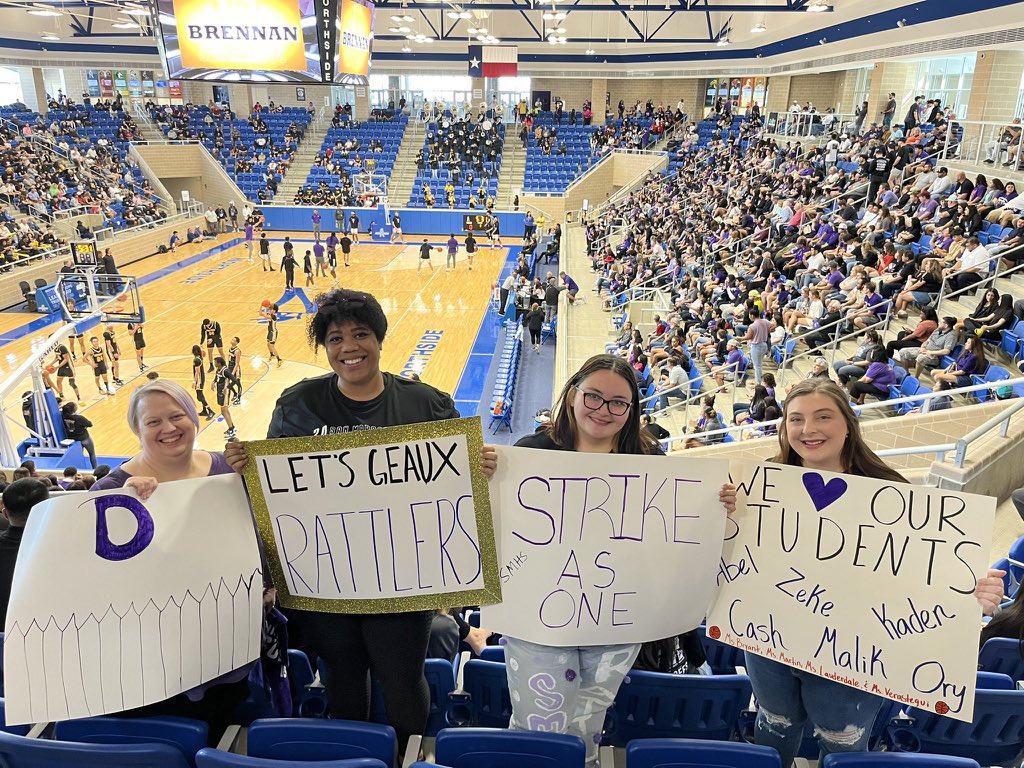 BRENNAN
BRENNAN
NORTHSIDE
NORTHSIDE
D
LET'S GEAUX
RATTLERS
STRIKE
AS
ONE
SMHS
WE OUR
STUDENTS
Abel Zeke Kaden
Cash Malik Ory
Ms. Bryant, Ms. Martin, Ms. Lauderdale, & Ms. Verastegui